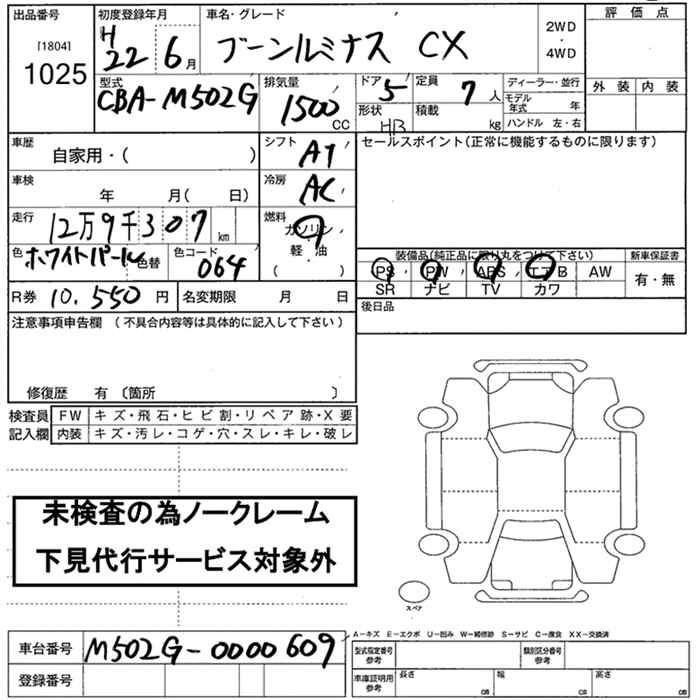 出品番号 初度登録年月 車名・グレード 2WD ・ 4WD 評価点
[1804] 1025 H22 6月 ブーンルミナス CX
型式 CBA-M502G 排気量 1500 CC ドア 5 形状 HB 定員 7 人 積載 kg ディーラー・並行 モデル年式 年 ハンドル 左・右 外装 内装
車歴 自家用・( ) シフト AT セールスポイント(正常に機能するものに限ります)
車検 年 月( 日) 冷房 AC
走行 12万9千307 km 燃料 ガソリン 軽・油 ( ・ )
色 ホワイトパール 色替 色コード 064
装備品(純正品に限り丸をつけて下さい) 新車保証書
PS PW ABS エアB AW 有・無
SR ナビ TV カワ
R券 10,550 円 名変期限 月 日 後日品
注意事項申告欄 (不具合内容等は具体的に記入して下さい)
修復歴 有 〔箇所 〕
検査員 FW キズ・飛石・ヒビ割・リペア跡・X要
記入欄 内装 キズ・汚レ・コゲ・穴・スレ・キレ・破レ
未検査の為ノークレーム
下見代行サービス対象外
スペア
A−キズ E−エクボ U−凹み W−補修跡 S−サビ C−腐食 XX−交換済
車台番号 M502G-0000609 型式指定番号 参考 類別区分番号 参考
登録番号 車庫証明用 参考 長さ cm 幅 cm 高さ cm